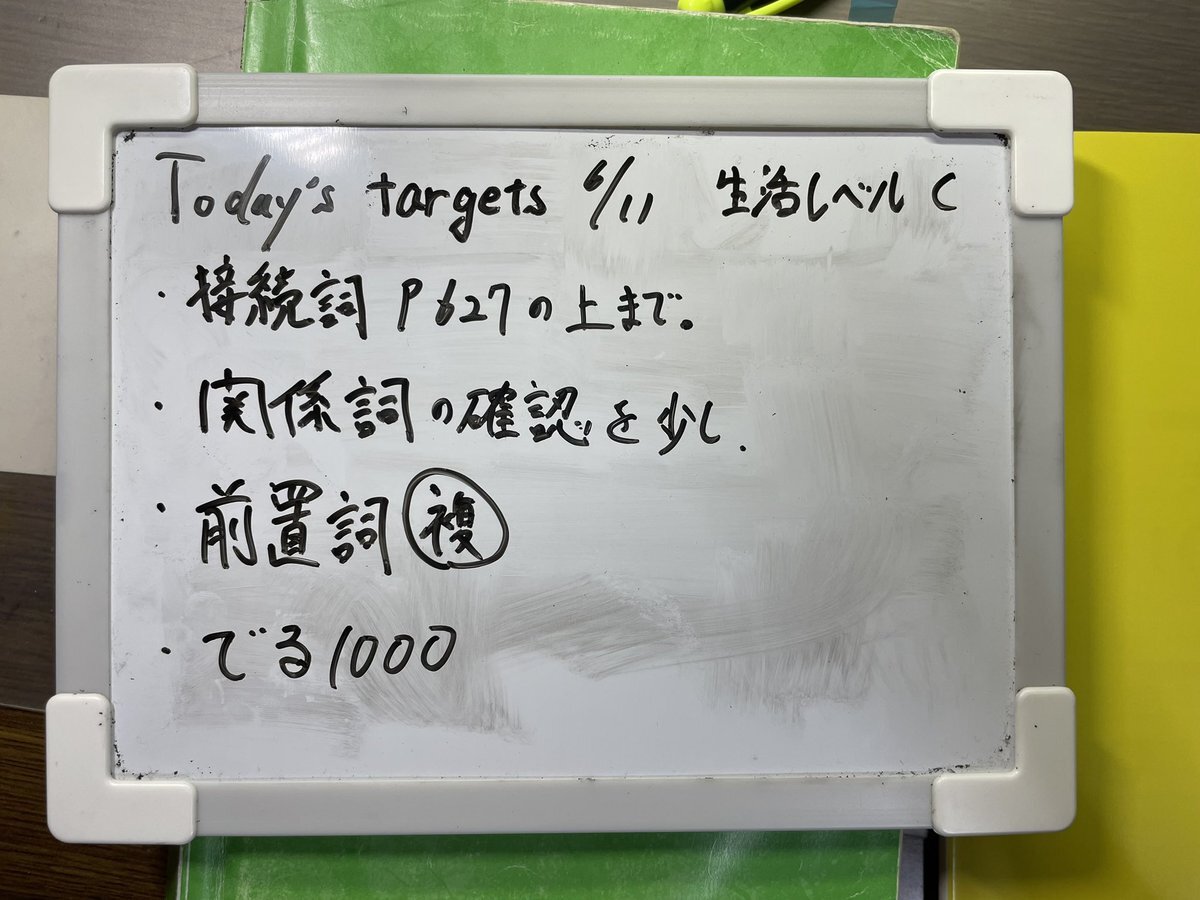 Today's targets 6/11 生活レベル C
・接続詞 P627の上まで。
・関係詞の確認を少し.
・前置詞 複
・でる1000